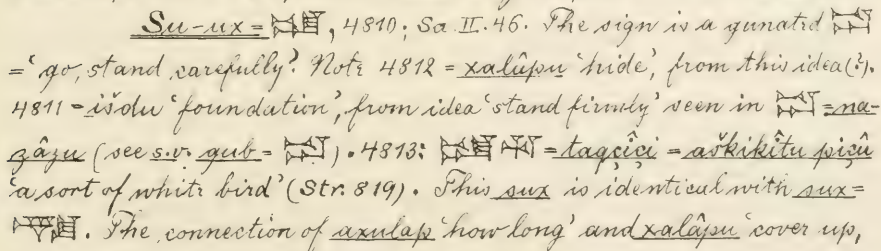 Su-ux = 𒁺𒌓, 4810; Sa. II. 46. The sign is a gunated 𒁺
= 'go, stand carefully'. Note 4812 = xalâpu 'hide', from this idea(?).
4811 = išdu 'foundation', from idea 'stand firmly' seen in 𒁺 = na-
zâzu (see s.v. gub = 𒁺). 4813: = taqcîci = aškikîtu picû
'a sort of white bird' (Str. 819). This sux is identical with sux =
. The connection of axulap 'how long' and xalâpu 'cover up,